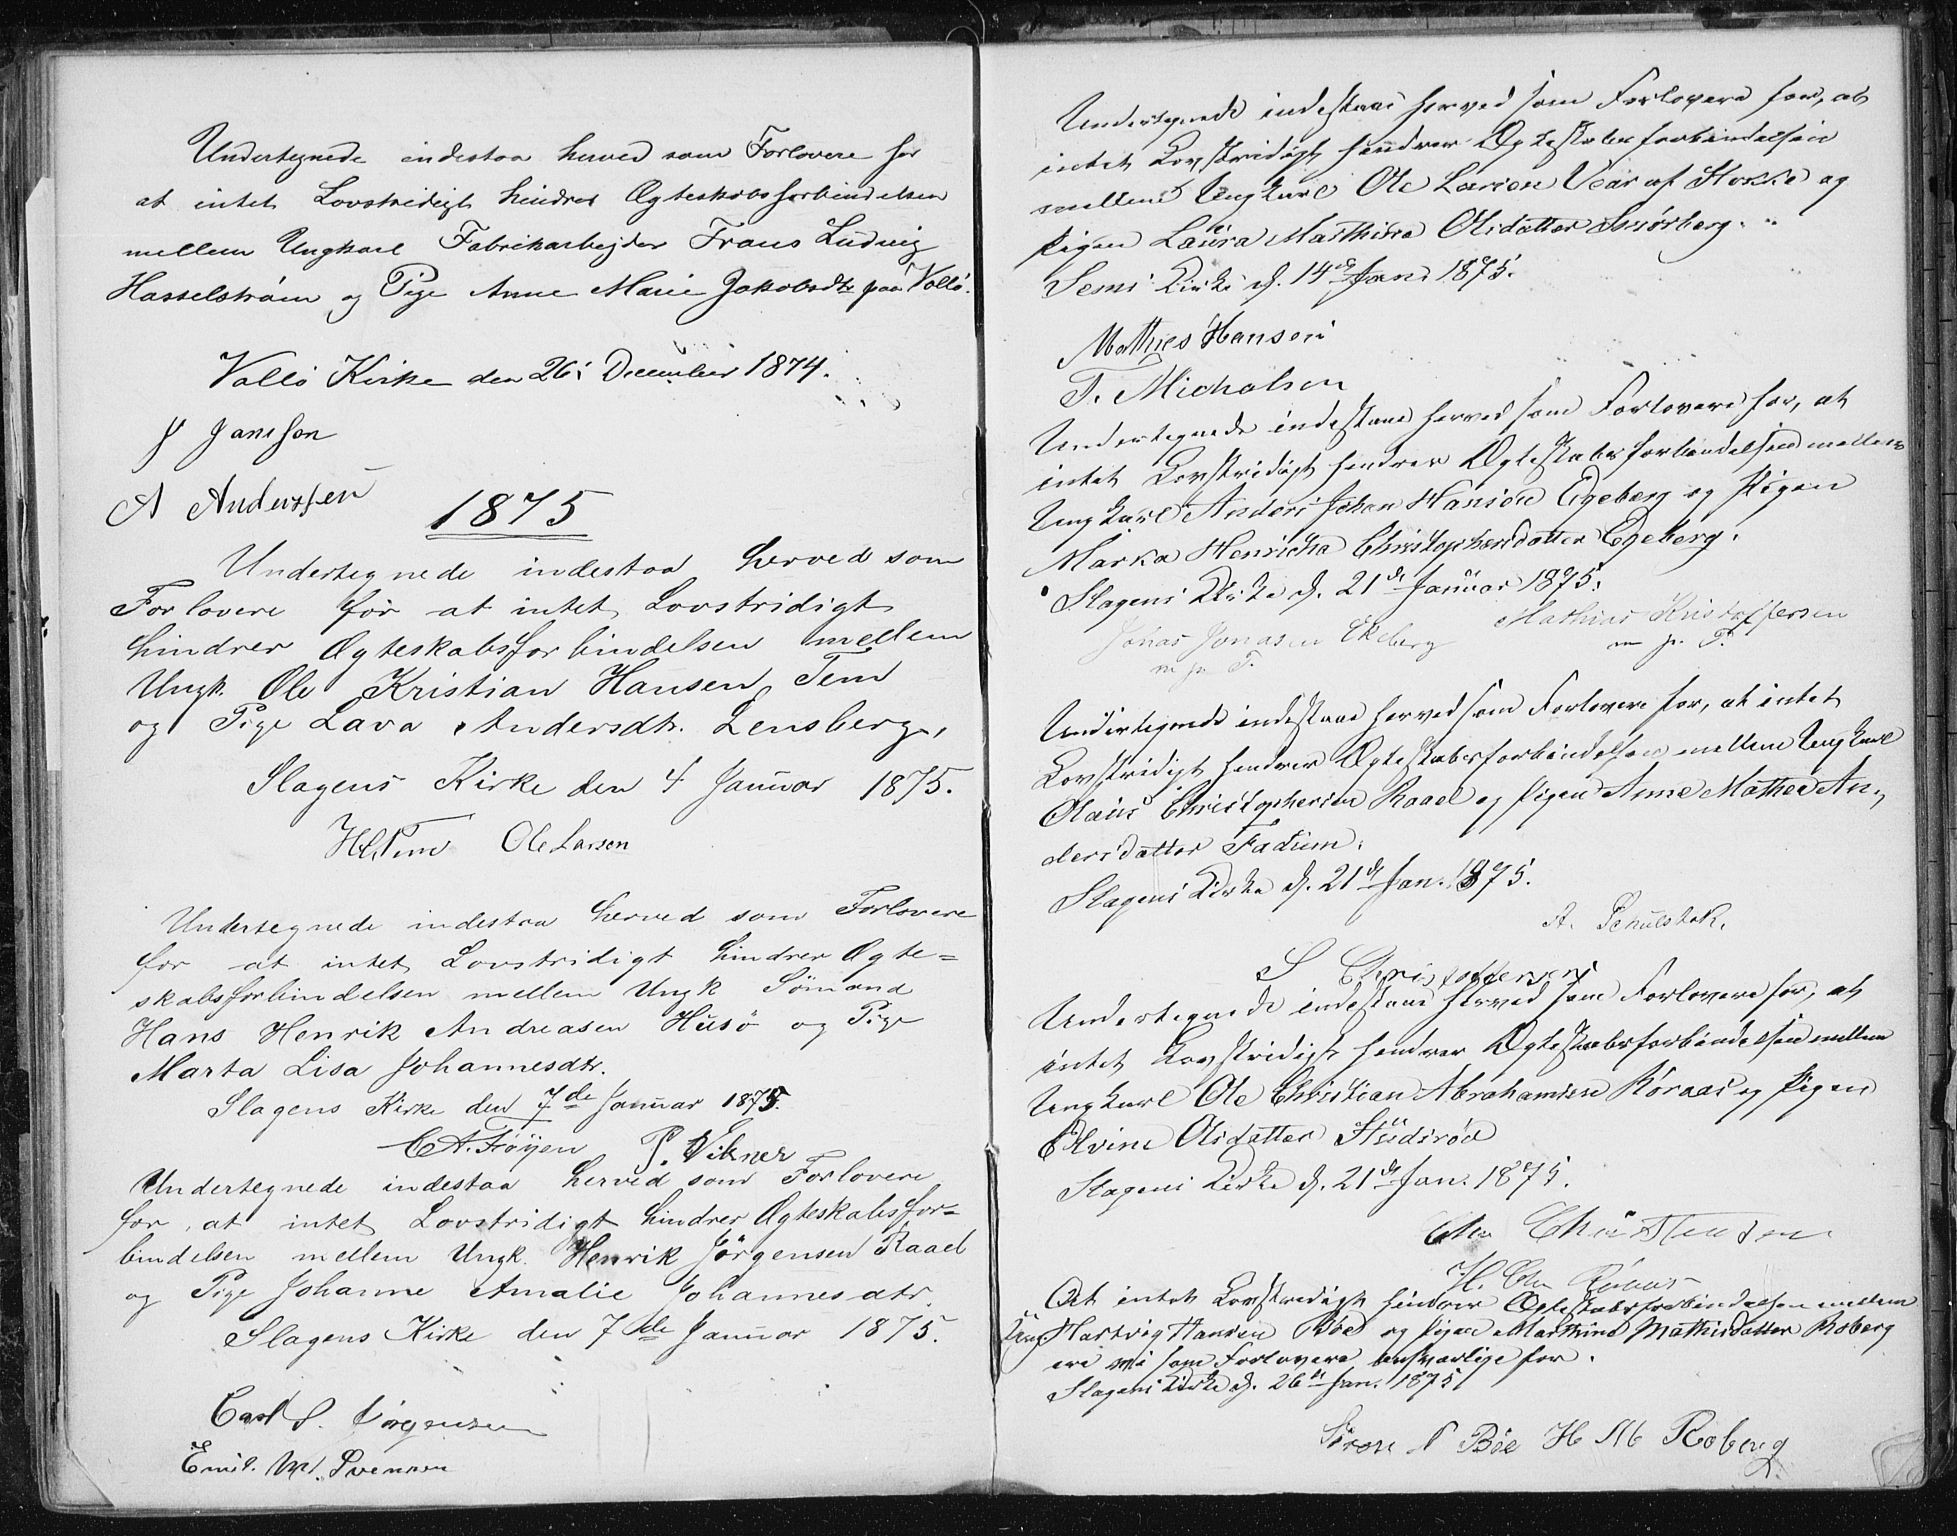 Undertegnede indestaa herved som Forlovere for
at intet Lovstridigt hindrer Ægteskabsforbindelsen
mellem Ungkarl Fabrikarbejder Frans Ludvig
Hasselstrøm og Pige Anne Marie Jakobsdtr paa Vallö.
Vallö Kirke den 26. December 1874.
J Jansson
A Anderssen
1875
Undertegnede indestaa herved som
Forlovere for at intet Lovstridigt
hindrer Ægteskabsforbindelsen mellem
Ungk. Ole Kristian Hansen Tem
og Pige Lava Andersdtr. Lensberg,
Slagens Kirke den 4 Januar 1875.
H. Tem Ole Larsen
Undertegnede indestaa herved som Forlovere
for at intet Lovstridigt hindrer Ægte=
skabsforbindelsen mellem Ungk Sömand
Hans Henrik Andreasen Husö og Pige
Marta Lisa Johannesdtr.
Slagens Kirke den 7de Januar 1875.
C A. Föyen P. Vikner
Undertegnede indestaa herved som Forlovere
for at intet Lovstridigt hindrer Ægteskabsfor=
bindelsen mellem Ungk. Henrik Jörgensen Raael
og Pige Johanne Amalie Johannesdtr.
Slagens Kirke den 7de Januar 1875.
Carl S. Jörgensen
Emil. Svensen
Undertegnede indestaae herved som Forlovere for, at
intet Lovstridigt hindrer Ægteskabsforbindelsen
mellem Ungkarl Ole Larsen Vear af Stokke og
Pigen Laura Mathisa Olsdatter Smörberg.
Sems Kirke d. 14de Jan. 1875.
Mathies Hansen
T. Micholsen
Undertegnede indestaae herved som Forlovere for, at
intet Lovstridigt hindrer Ægteskabsforbindelsen mellem
Ungkarl Anders Johan Hansen Egeberg og Pigen
Marka Henricha Christophersdatter Egeberg.
Slagens Kirke d. 21de Januar 1875.
Mathias Kristoffersen
Jonas Jonasen Ekeberg m. p. P.
m p. P.
Undertegnede indestaae herved som Forlovere for, at intet
Lovstridigt hindrer Ægteskabsforbindelsen mellem Ungkarl
Olaus Christophersen Raael og Pigen Anne Mathea An-
dersdatter Fadum.
Slagens Kirke d. 21de Jan. 1875.
A. Schulstok.
S Christoffersen
Undertegnede indestaae herved som Forlovere for, at
intet Lovstridigt hindrer Ægteskabsforbindelsen mellem
Ungkarl Ole Christian Abrahamsen Röraas og Pigen
Elvine Olsdatter Studsröd
Slagens Kirke d. 21de Jan. 1875.
Chr Christensen
H. Chr Röraas
At intet Lovstridigt hindrer Ægteskabsforbindelsen mellem
Ung. Hartvig Hansen Böe og Pigen Marthine Mathisdatter Roberg
ere vi som Forlovere ansvarlige for.
Slagens Kirke d. 26de Jan. 1875
Sören N Böe H M Roberg